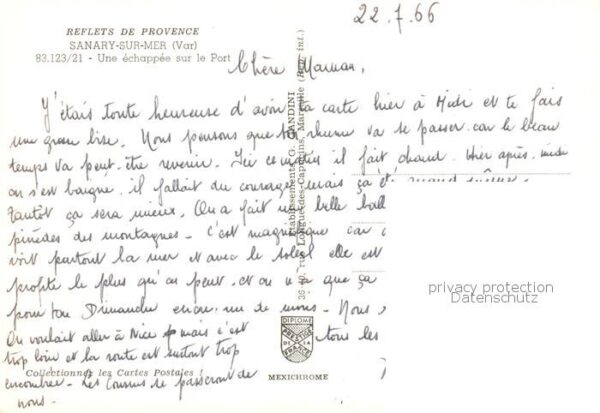 22.7.66
REFLETS DE PROVENCE
SANARY-SUR-MER (Var)
83.123/21 - Une échappée sur le Port
Chère Maman,
J'étais toute heureuse d'avoir ta carte hier à Midi et te fais
une grosse bise. Nous pensons que ton rhume va se passer car le beau
temps va peut-être revenir. Ici ce matin il fait chaud. Hier après-midi
on s'est baigné, il fallait du courage mais ça
Tantôt ça sera mieux. On a fait une belle
pinèdes des montagnes. C'est magnifique car
voit partout la mer et avec le soleil elle est
profite le plus qu'on peut, et on a que ça
pour ton Dimanche encore de moins. Nous
On voulait aller à Nice mais c'est
tous les
trop loin et la route est surtout trop
encombrée. Les Cousins se passeront de
nous.
Collectionnez les Cartes Postales !
Etablissements G. GANDINI
36-40, rue Longue-des-Capucins, Marseille (Rep. int.)
DIPLOME
PRESTIGE
DE LA
FRANCE
MEXICHROME
privacy protection
Datenschutz